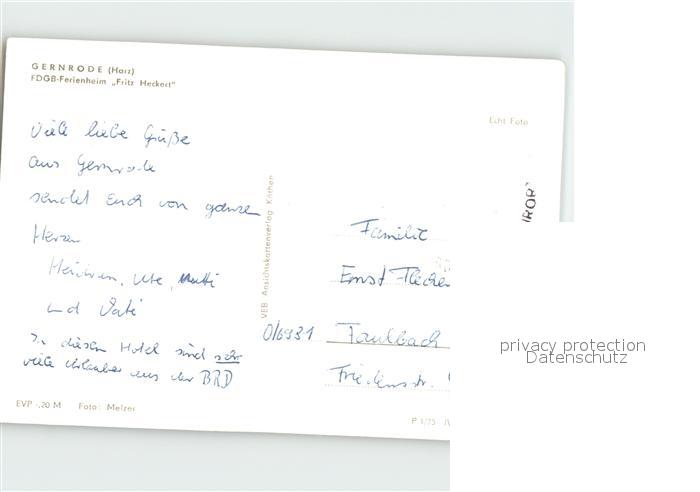 GERNRODE (Harz)
FDGB-Ferienheim „Fritz Heckert"
Echt Foto
Viele liebe Grüße
aus Gernrode
sendet Euch von ganzem
Herzen
Ute, Mutti
und Vati
In diesem Hotel sind sehr
viele Urlauber aus der BRD
EVP -,20 M Foto: Melzer
VEB Ansichtskartenverlag Köthen
Familie
Ernst
0/6931 Faulbach
Friedensstr.
P 1/75
privacy protection
Datenschutz